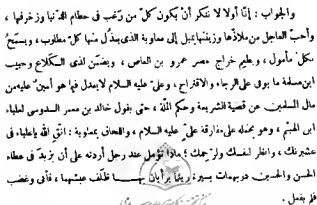 والجواب : إنّا أولا لا ننكر أن يكون كلّ من رغب في حطام الدّنيا وزخرفها ،
وأحبّ العاجل من ملاذّها وزينتها يميل إلى معاوية الذى يبذل منها كلّ مطلوب ، ويسمح
بكلّ مأمول ، ويطعم خراج مصر عمرو بن العاص ، ويضمن لذى الكلاع وحبيب
ابن مسلمة ما يوفى على الرجاء والاقتراح ، وعلىّ عليه السلام لا يعدل فيما هو أمين عليه من
مال المسلمين عن قضية الشريعة وحكم الملّة ، حتى يقول خالد بن معمر السدوسى لعلباء
ابن الهيثم ، وهو يحمله على مفارقة علىّ عليه السلام ، واللحاق بمعاوية : اتق الله يا علباء فى
عشيرتك ، وانظر لنفسك ولرحمك ؛ ماذا تؤمل عند رجل أردته على أن يزيد فى عطاء
الحسن والحسين دريهمات يسيرة ريثما يرأبان بهـا ظلف عيشهما ، فأبى وغضب
فلم يفعل .